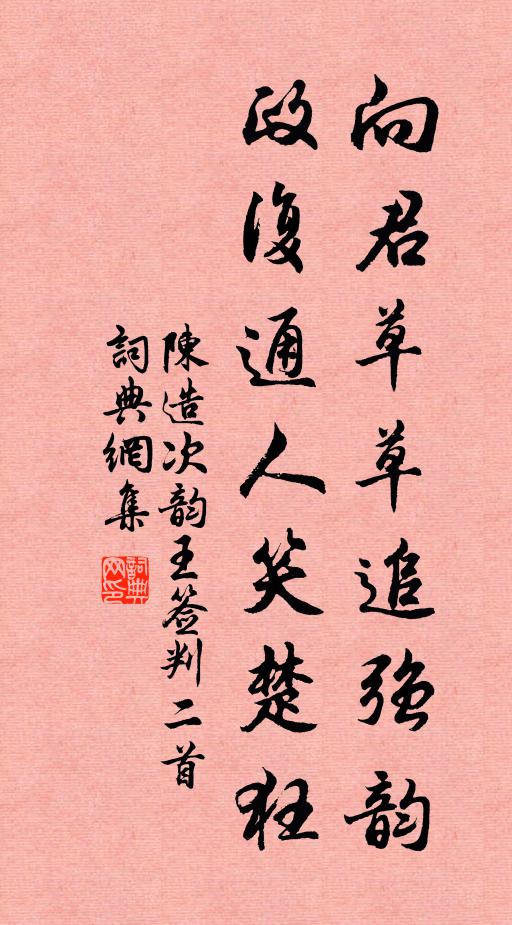 向君草草追强韵
政復通人笑楚狂
陳造次韵王簽判二首
詞典網集
詞典網印